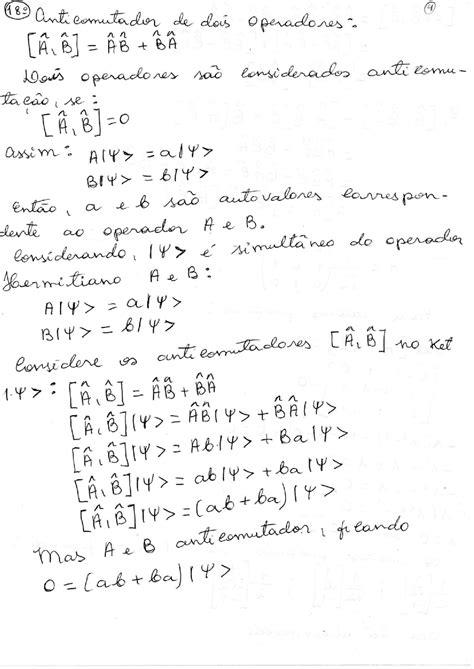 18º) Anticomutador de dois operadores:
①
[Â, B̂] = ÂB̂ + B̂Â
Dois operadores são considerados anticomu-
tação, se:
[Â, B̂] = 0
Assim: A|Ψ> = a|Ψ>
B|Ψ> = b|Ψ>
Então, a e b são autovalores correspon-
dente ao operador A e B.
Considerando, |Ψ> é simultâneo do operador
Hermitiano A e B:
A|Ψ> = a|Ψ>
B|Ψ> = b|Ψ>
Considere os anticomutadores [Â, B̂] no Ket
|Ψ>: [Â, B̂] = ÂB̂ + B̂Â
[Â, B̂]|Ψ> = ÂB̂|Ψ> + B̂Â|Ψ>
[Â, B̂]|Ψ> = Ab|Ψ> + Ba|Ψ>
[Â, B̂]|Ψ> = ab|Ψ> + ba|Ψ>
[Â, B̂]|Ψ> = (ab + ba)|Ψ>
Mas A e B anticomutador, ficando
0 = (ab + ba)|Ψ>